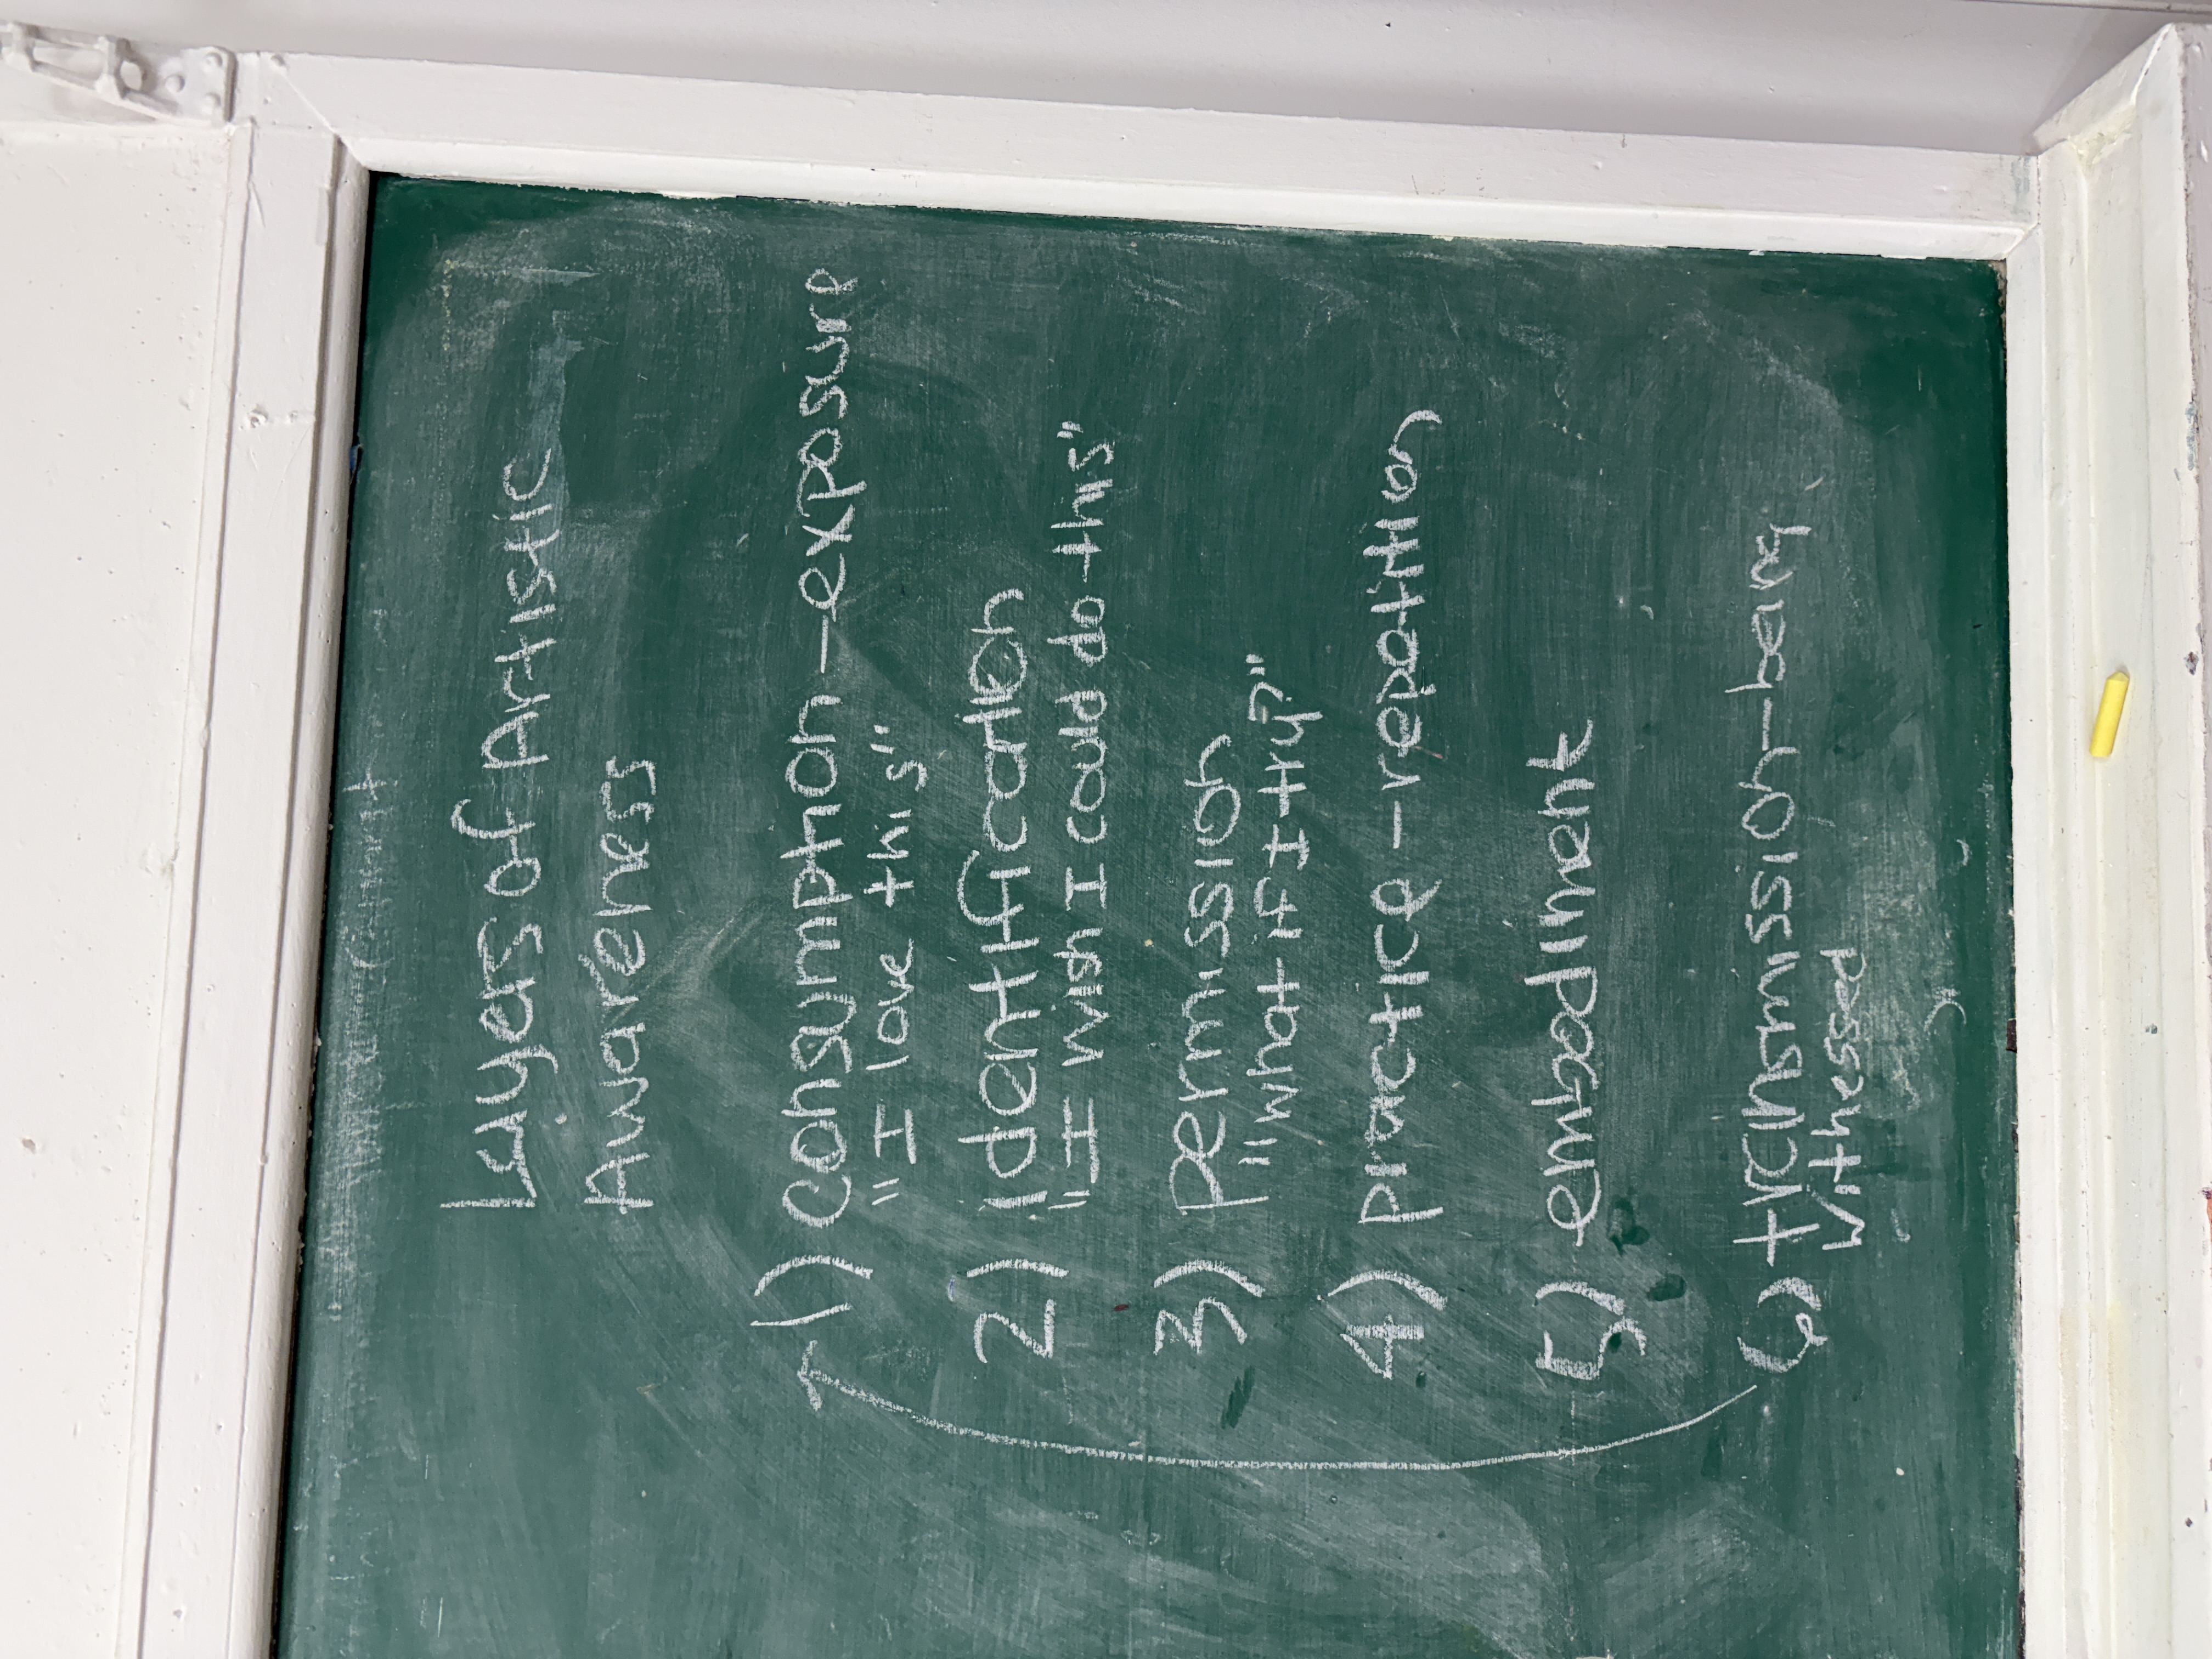 Layers of Artistic
Awareness
1) Consumption - exposure
"I love this"
2) identification
"I wish I could do this"
3) permission
"what if I try?"
4) practice - repatition
5) embodiment
6) transmission - being
witnessed